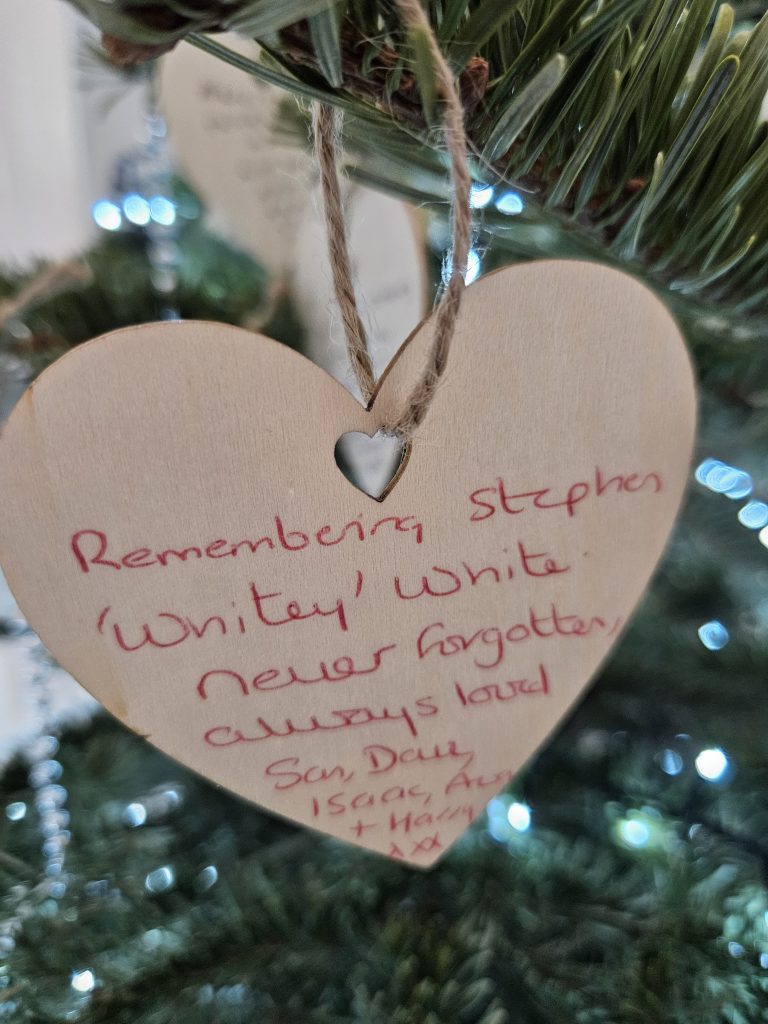 Remembering Stephen
'Whitey' White
never forgotten,
always loved
San, Dave,
Isaac,
+ Harry
xxx